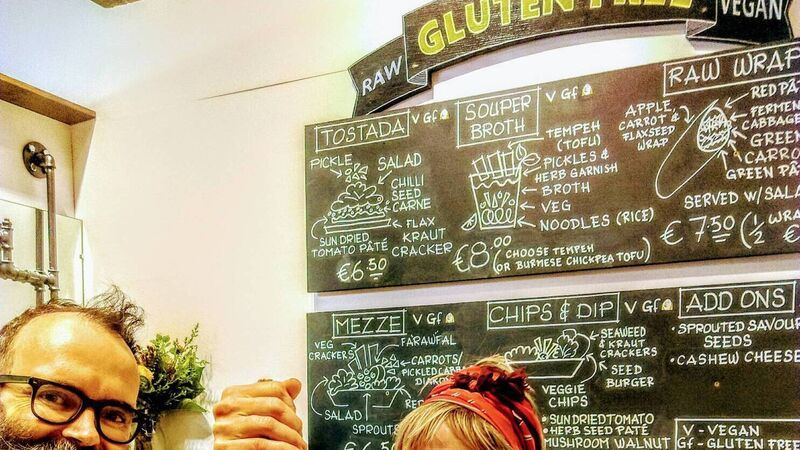 RAW
GLUTEN FREE
VEGAN
TOSTADA V Gf
PICKLE
SALAD
CHILLI
SEED
CARNE
FLAX
KRAUT
CRACKER
SUN DRIED
TOMATO PÂTÉ
€6.50
SOUPER
BROTH
V Gf
TEMPEH
(TOFU)
PICKLES &
HERB GARNISH
BROTH
VEG
NOODLES (RICE)
€8.00
(CHOOSE TEMPEH
OR BURMESE CHICKPEA TOFU)
RAW WRAP
APPLE,
CARROT &
FLAXSEED
WRAP
RED PÂT
FERMEN
CABBAG
GREEN
CARRO
GREEN PÂT
SERVED W/SALA
€7.50 (½ WRA
€
MEZZE V Gf
VEG
CRACKERS
FARAWFAL
CARROTS/
PICKLED CABBA
DIAKO
SALAD
SPROUTS
€6.50
CHIPS & DIP V Gf
SEAWEED
& KRAUT
CRACKERS
SEED
BURGER
VEGGIE
CHIPS
• SUNDRIED TOMATO
• HERB SEED PÂTÉ
MUSHROOM WALNUT
ADD ONS
• SPROUTED SAVOUR
SEEDS
• CASHEW CHEESE
V - VEGAN
Gf - GLUTEN FREE